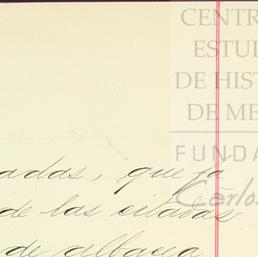 CENTR
ESTUI
DE HIST
DE ME
FUNDA
Carlos
adas, que
de las citadas
de albacea